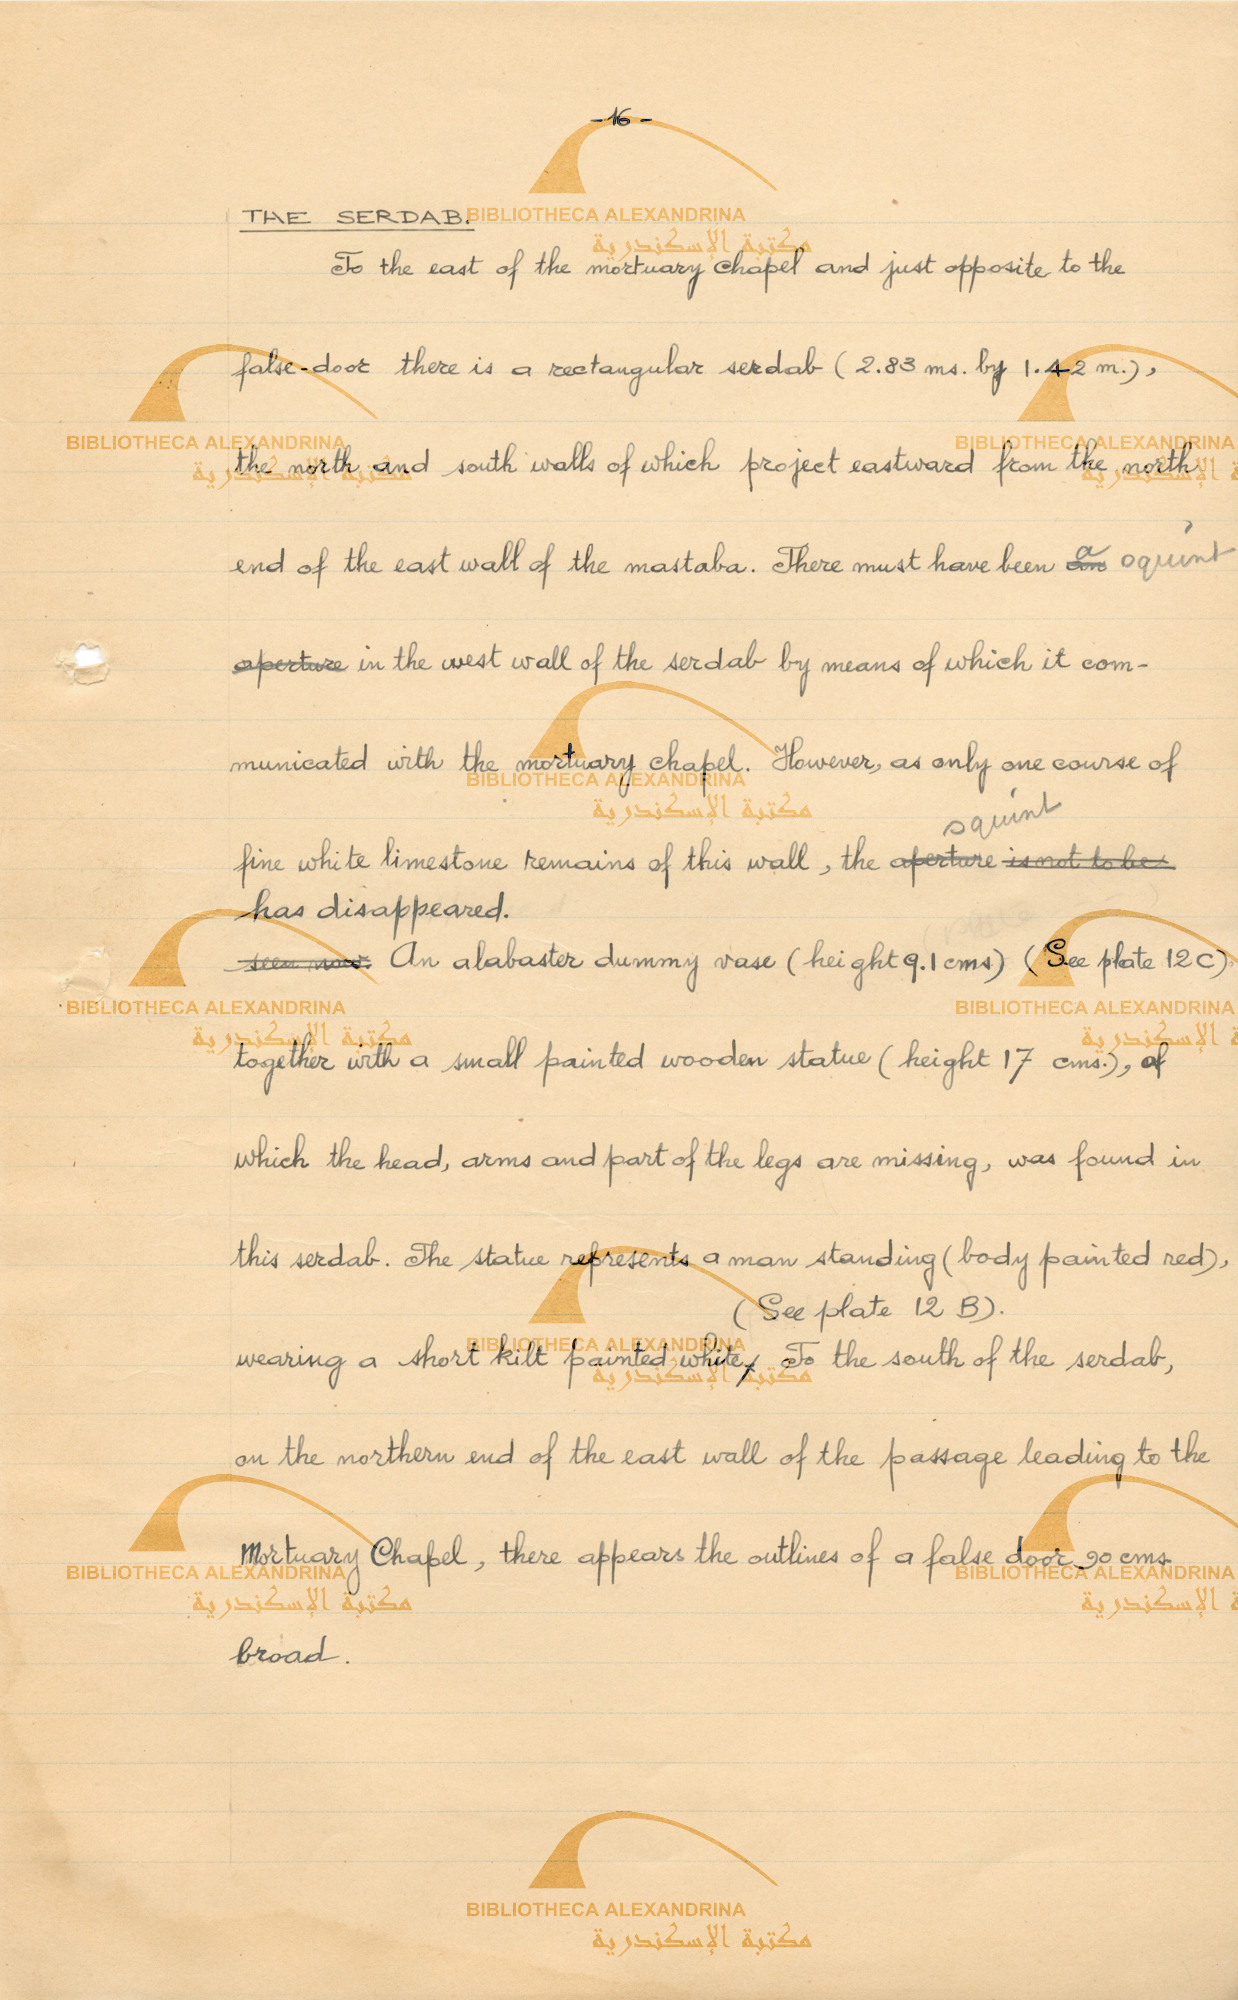 - 16 -
THE SERDAB.
To the east of the mortuary chapel and just opposite to the
false-door there is a rectangular serdab (2.83 ms. by 1.42 m.),
the north and south walls of which project eastward from the north
end of the east wall of the mastaba. There must have been an a squint
aperture in the west wall of the serdab by means of which it com-
municated with the mortuary chapel. However, as only one course of
squint
fine white limestone remains of this wall, the aperture is not to be
has disappeared.
seen now. An alabaster dummy vase (height 9.1 cms) (See plate 12 C)
together with a small painted wooden statue (height 17 cms.), of
which the head, arms and part of the legs are missing, was found in
this serdab. The statue represents a man standing (body painted red),
(See plate 12 B).
wearing a short kilt painted white, To the south of the serdab,
on the northern end of the east wall of the passage leading to the
Mortuary Chapel, there appears the outlines of a false door 90 cms
broad.
BIBLIOTHECA ALEXANDRINA
مكتبة الإسكندرية
BIBLIOTHECA ALEXANDRINA
مكتبة الإسكندرية
BIBLIOTHECA ALEXANDRINA
BIBLIOTHECA ALEXANDRINA
مكتبة الإسكندرية
BIBLIOTHECA ALEXANDRINA
مكتبة الإسكندرية
BIBLIOTHECA ALEXANDRINA
BIBLIOTHECA ALEXANDRINA
مكتبة الإسكندرية
BIBLIOTHECA ALEXANDRINA
مكتبة الإسكندرية
BIBLIOTHECA ALEXANDRINA
BIBLIOTHECA ALEXANDRINA
مكتبة الإسكندرية